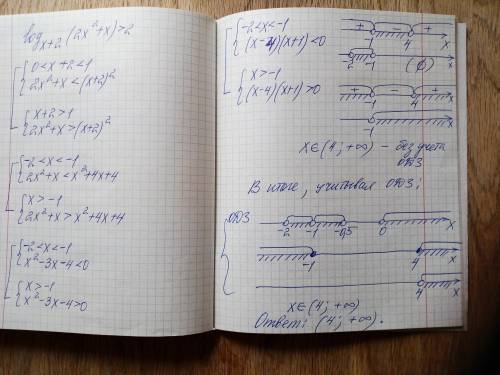 log_{x+2}(2x²+x)>2
{0<x+2<1
{2x²+x<(x+2)²
{x+2>1
{2x²+x>(x+2)²
{-2<x<-1
{2x²+x<x²+4x+4
{x>-1
{2x²+x>x²+4x+4
{-2<x<-1
{x²-3x-4<0
{x>-1
{x²-3x-4>0
{-2<x<-1
{(x-4)(x+1)<0
{x>-1
{(x-4)(x+1)>0
+ - +
-1 4 x
-2 -1 (∅) x
+ - +
-1 4 x
-1 x
x∈(4; +∞) - без учета
ОДЗ
В итоге, учитывая ОДЗ:
ОДЗ -2 -1 -0,5 0 x
-1 4 x
4 x
x∈(4; +∞)
Ответ: (4; +∞).